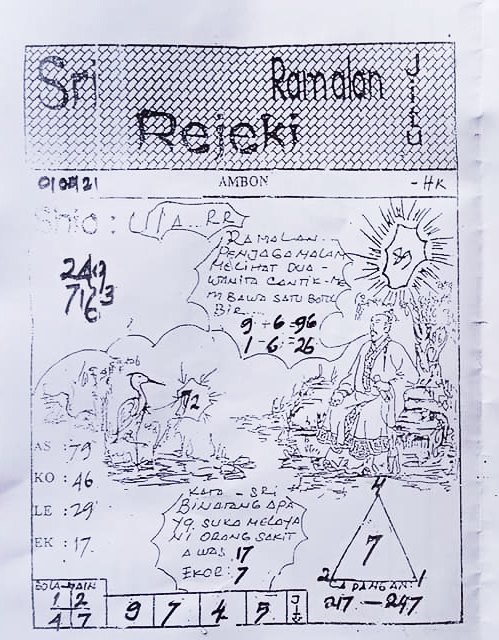 Sri
Ramalan
JITU
Rejeki
AMBON
- HK
Shio :
RAMALAN :-
PENJAGA MALAM
MELIHAT DUA -
WANITA CANTIK - ME
M BAWA SATU BOTOL
BIR
9 - 6 = 96
1 - 6 = 26
72
AS : 79
KO : 46
LE : 29
EK : 17
KATA - SRI
BINATANG APA
YG. SUKA MELAYA
NI ORANG SAKIT
AWAS 17
EKOR : 7
4
7
2
1
LAPANGAN:
217 - 247
1 2
4 7
9 7 4 5